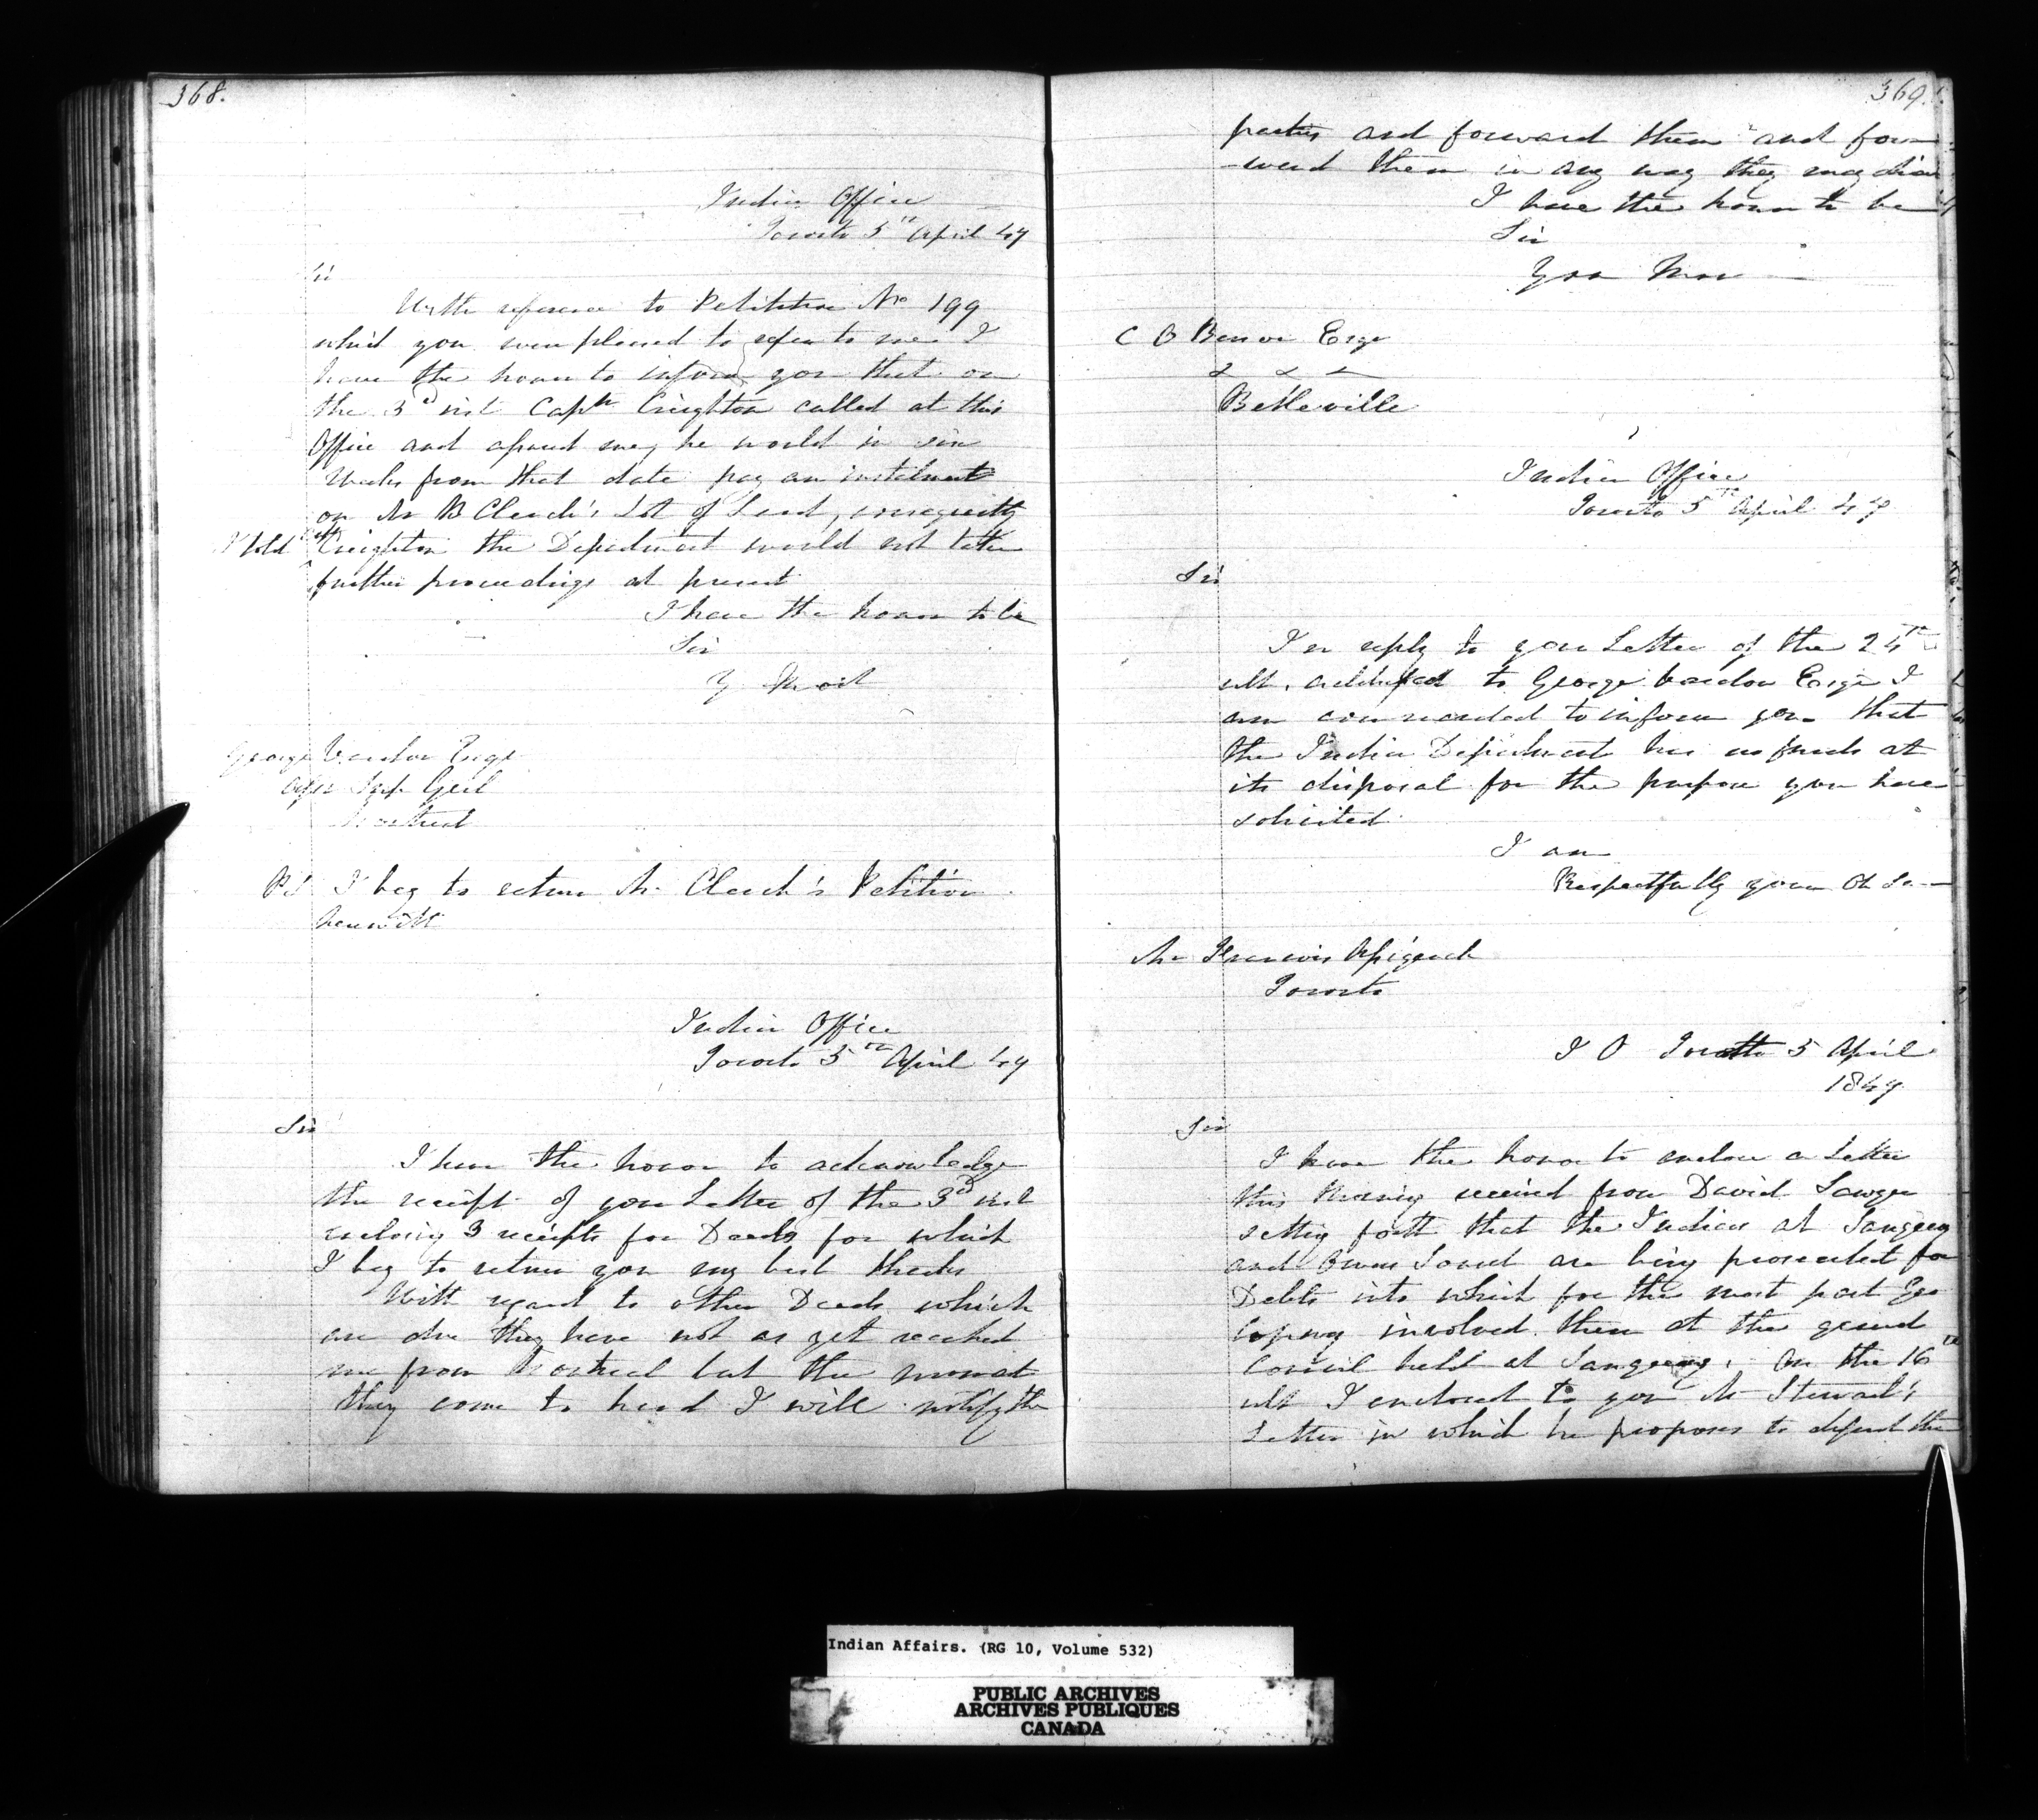 368.
Indian Office
Toronto 5th April 47
Sir
With reference to Petition No 199
which you were pleased to refer to me I
have the honor to inform you that on
the 3d inst Captn Creighton called at this
Office and me, he would in six
Weeks from that date pay an instalment
on Mr B Clench's Lot of Land, consequently
I told Captn Creighton the Department would not take
further proceedings at present
I have the honor to be
Sir
Y Most
George Vardon Esqr
Asst Supt Genl
Montreal
PS I beg to return Mr Clench's Petition
herewith
Indian Office
Toronto 5th April 47
Sir
I have the honor to acknowledge
the receipt of your Letter of the 3d inst
enclosing 3 receipts for Deeds for which
I beg to return you my best thanks
With regard to other Deeds which
are due they have not as yet reached
me from Montreal but the moment
they come to hand I will notify the
369.
parties and forward them and for
-ward them in any way they may
I have the honor to be
Sir
Your Mos
C O Benson Esqr
& & &
Belleville
Indian Office
Toronto 5th April 47
Sir
In reply to your Letter of the 24th
ult. addressed to George Vardon Esqr I
am commanded to inform you that
the Indian Department has no funds at
its disposal for the purpose you have
solicited
I am
Respectfully your Ob Se
Mr Francis Assiginack
Toronto
I O Toronto 5 April
1847
Sir
I have the honor to enclose a Letter
this Morning received from David Sawyer
setting forth that the Indians at Saugeeng
and Owen Sound are being prosecuted for
Debts into which for the most part Geo
Copway involved them at the grand
Council held at Saugeeng. On the 16th
ult I enclosed to you Mr Steward's
Letter in which he proposes to defend the
Indian Affairs. (RG 10, Volume 532)
PUBLIC ARCHIVES
ARCHIVES PUBLIQUES
CANADA